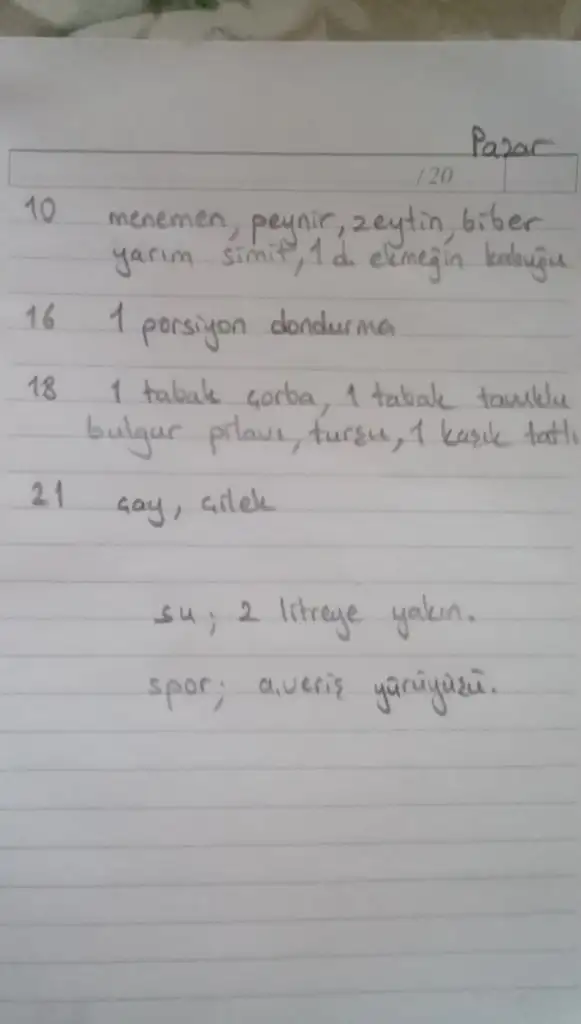 Pazar
/20
10 menemen, peynir, zeytin, biber
yarım simit, 1 d. ekmeğin kabuğu
16 1 porsiyon dondurma
18 1 tabak çorba, 1 tabak tavuklu
bulgur pilavı, turşu, 1 kaşık tatlı
21 çay, çilek
su; 2 litreye yakın.
spor; a.veriş yürüyüşü.